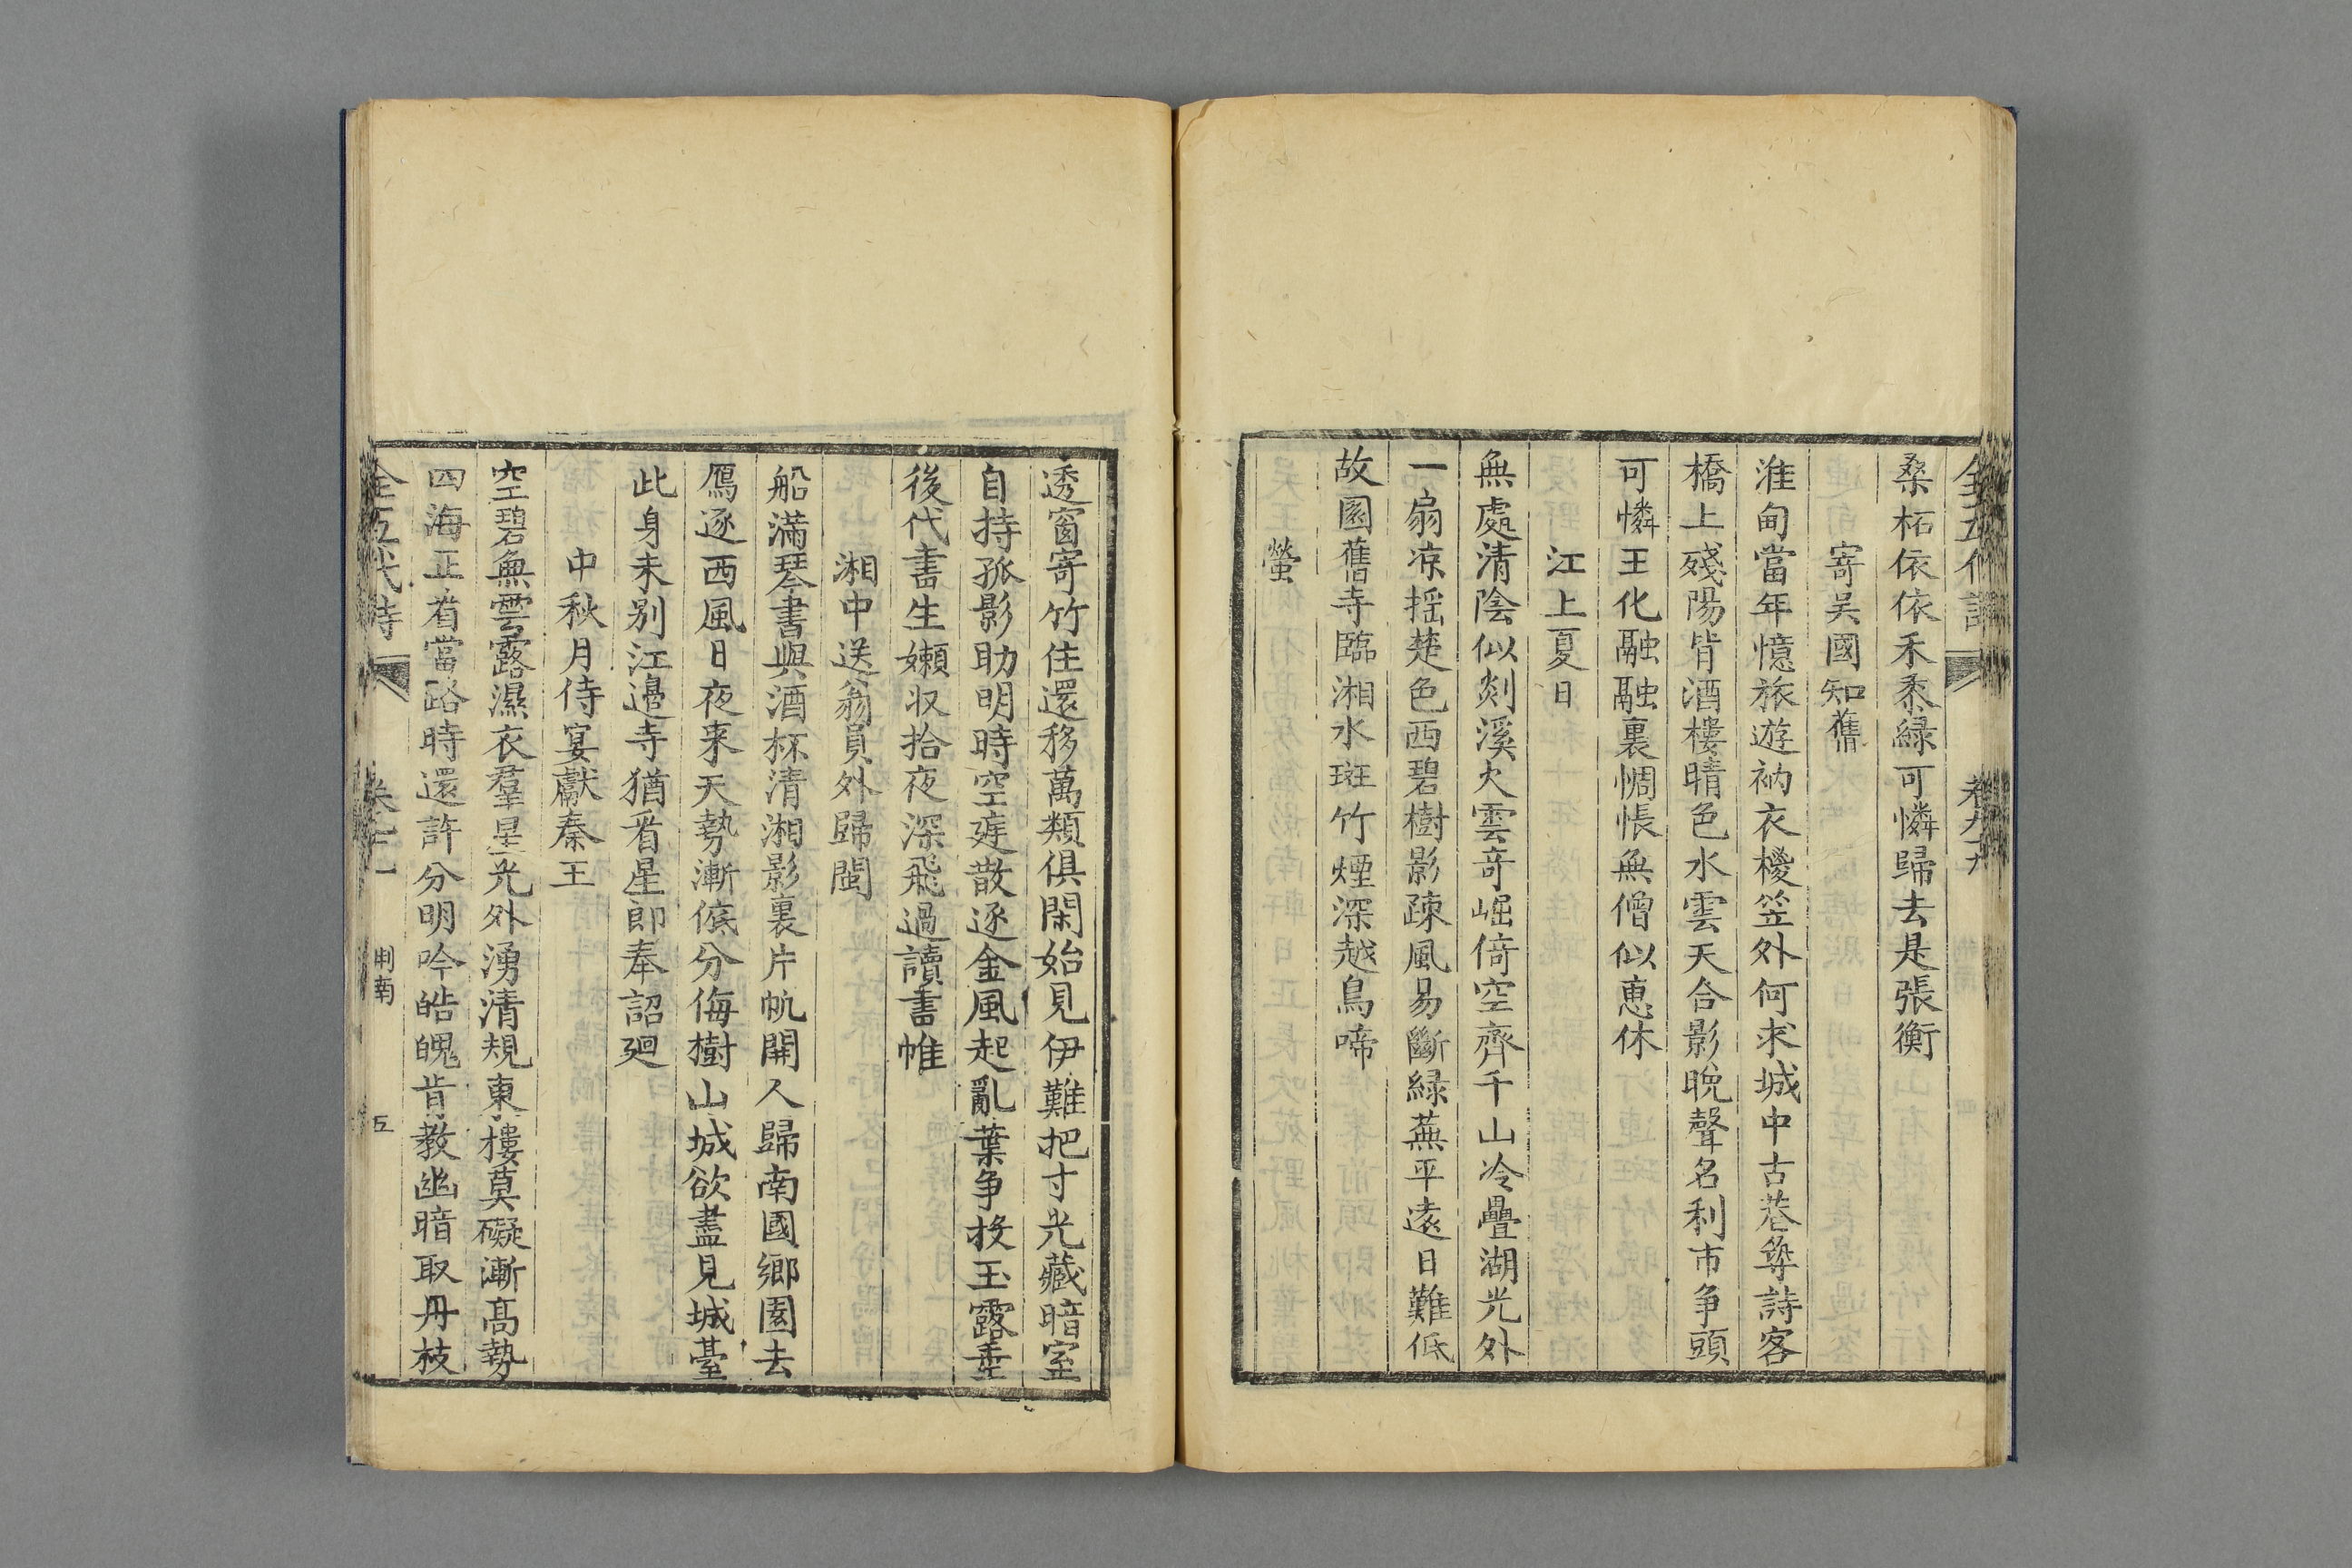 桑柘依依禾黍緑可憐歸去是張衡
寄吳國知舊
淮甸當年憶旅遊衲衣椶笠外何求城中古巷尋詩客
橋上殘陽背酒樓晴色水雲天合影晩聲名利市爭頭
可憐王化融融裏惆悵無僧似惠休
江上夏日
無處清陰似剡溪火雲竒崛倚空齊千山冷疊湖光外
一扇凉揺楚色西碧樹影疎風易斷緑蕪平逺日難低
故園舊寺臨湘水斑竹煙深越鳥啼
螢
透窗寄竹住還移萬類俱閑始見伊難把寸光藏暗室
自持孤影助明時空庭散逐金風起亂葉爭投玉露垂
後代書生嬾収拾夜深飛過讀書帷
湘中送翁員外歸閩
船滿琴書與酒杯清湘影裏片帆開人歸南國鄉園去
鴈逐西風日夜来天勢漸傾分侮樹山城欲盡見城臺
此身未别江邉寺猶看星郎奉詔廻
中秋月侍宴獻秦王
空碧無雲露濕衣羣星光外湧清規東樓莫礙漸髙勢
四海正看當路時還許分明吟皓魄肯教幽暗取丹枝
全五代詩
五